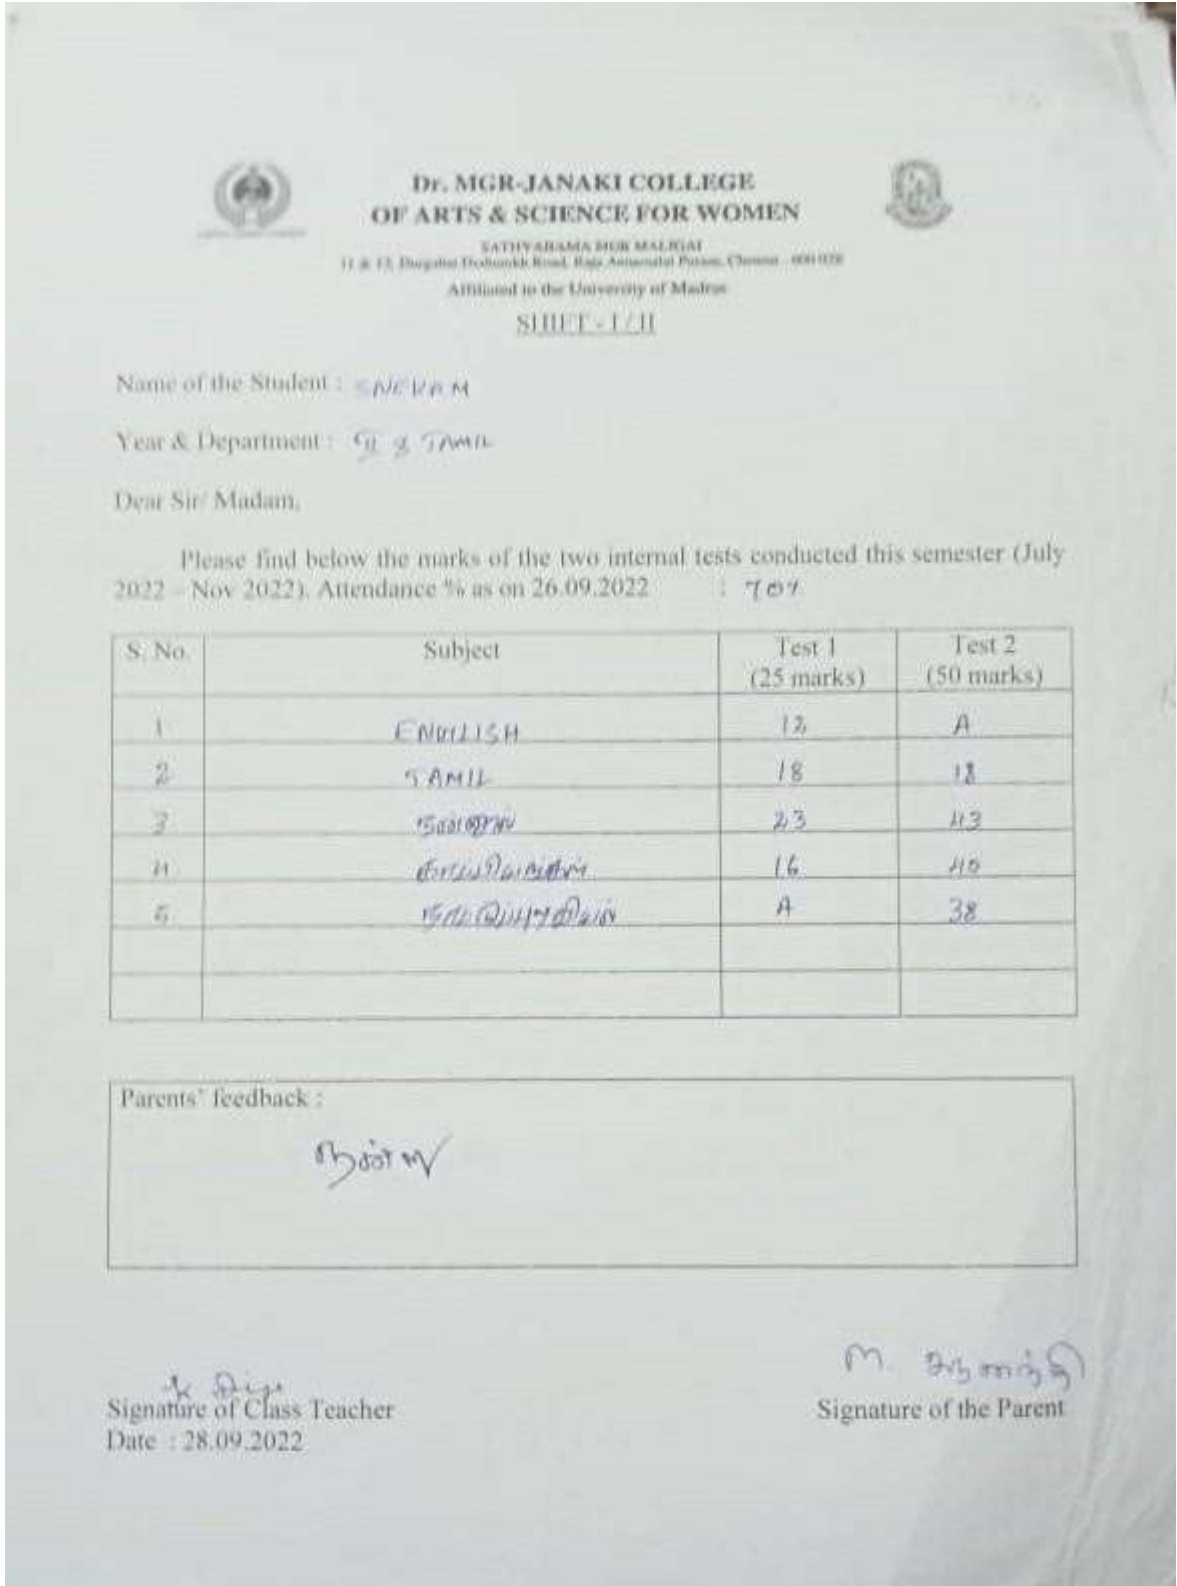 Dr. MGR-JANAKI COLLEGE
OF ARTS & SCIENCE FOR WOMEN
SATHYABAMA MGR MALIGAI
11 & 13, Durgabai Deshmukh Road, Raja Annamalai Puram, Chennai - 600 028
Affiliated to the University of Madras
SHIFT - I / II
Name of the Student :
Year & Department : & TAMIL
Dear Sir/ Madam,
Please find below the marks of the two internal tests conducted this semester (July
2022 – Nov 2022). Attendance % as on 26.09.2022 : 70%
S. No. Subject Test 1 (25 marks) Test 2 (50 marks)
1 ENGLISH 12 A
2 TAMIL 18 18
3 நன்னூல் 23 43
4 16 40
5 A 38
Parents' feedback :
நன்று
Signature of Class Teacher
Signature of the Parent
Date : 28.09.2022